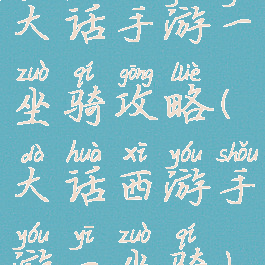 大话手游一
zuò qí gōng lüè
坐骑攻略(
dà huà xī yóu shǒu
大话西游手
yóu yī zuò qí
游一坐骑)